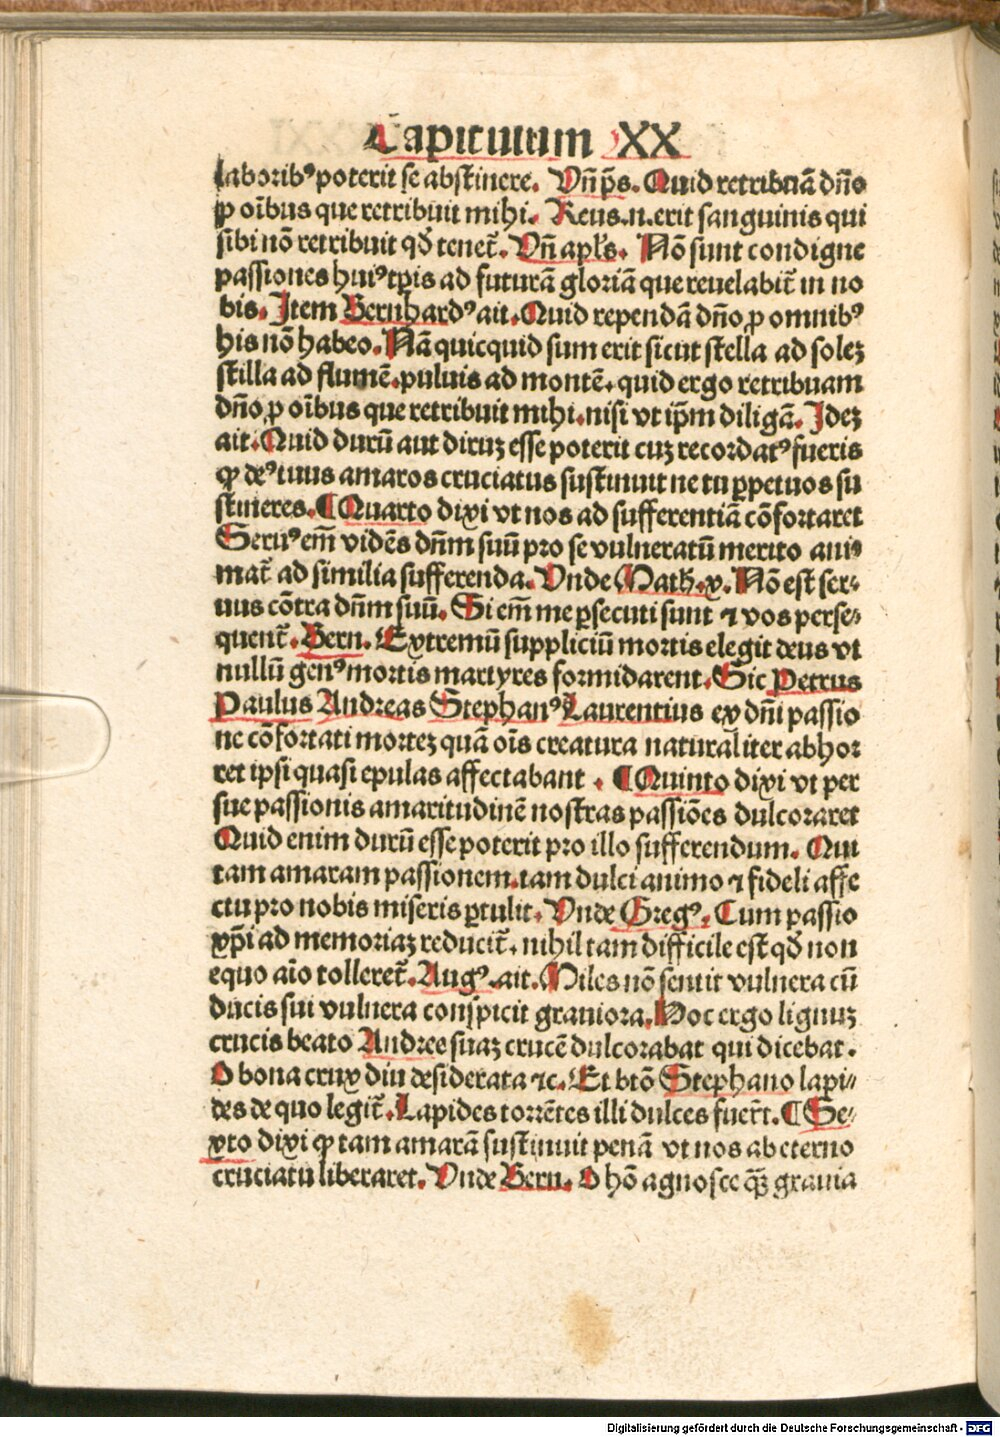 Capitulum XX
laboribꝰ poterit se abstinere. Vñ p̄s. Quid retribuã dño
ꝓ oībus que retribuit mihi. Reus .n. erit sanguinis qui
sibi nõ retribuit qð tenet̃. Vñ apl̃s. Nõ sunt condigne
passiones huiꝰ tꝑis ad futurã gloriã que reuelabit̃ in no
bis. Item Bernhardꝰ ait. Quid rependã dño ꝓ omnibꝰ
his nõ habeo. Nã quicquid sum erit sicut stella ad solez
stilla ad flumẽ. puluis ad montẽ. quid ergo retribuam
dño ꝓ oībus que retribuit mihi. nisi vt ip̃m diligã. Idez
ait. Quid durũ aut diruz esse poterit cuz recordatꝰ fueris
ꝙ deꝰ tuus amaros cruciatus sustinuit ne tu ꝑpetuos su
stineres. ¶ Quarto dixi vt nos ad sufferentiã cõfortaret
Seruꝰ em̃ vidẽs dñm suũ pro se vulneratũ merito ani⸗
mat̃ ad similia sufferenda. Vnde Math. x. Nõ est ser⸗
uus cõtra dñm suũ. Si em̃ me ꝑsecuti sunt ⁊ vos perse⸗
quent̃. Bern. Extremũ suppliciũ mortis elegit deus vt
nullũ genꝰ mortis martyres formidarent. Sic Petrus
Paulus Andreas Stephanꝰ Laurentius ex dñi passio
ne cõfortati mortez quã oĩs creatura naturaliter abhor
ret ipsi quasi epulas affectabant . ¶ Quinto dixi vt per
sue passionis amaritudinẽ nostras passiões dulcoraret
Quid enim durũ esse poterit pro illo sufferendum. Qui
tam amaram passionem. tam dulci animo ⁊ fideli affe
ctu pro nobis miseris ꝑtulit. Vnde Gregꝰ. Cum passio
xp̃i ad memoriaz reducit̃. nihil tam difficile est qð non
equo aĩo tolleret̃. Augꝰ. ait. Miles nõ sentit vulnera cũ
ducis sui vulnera conspicit grauiora. Hoc ergo lignuz
crucis beato Andree suaz crucẽ dulcorabat qui dicebat.
O bona crux diu desiderata ⁊c. Et btõ Stephano lapi⸗
des de quo legit̃. Lapides torrẽtes illi dulces fuer̃t. ¶ Se⸗
xto dixi ꝙ tam amarã sustinuit penã vt nos ab eterno
cruciatu liberaret. Vnde Bern. O hõ agnosce q̃ꝫ grauia
Digitalisierung gefördert durch die Deutsche Forschungsgemeinschaft - DFG